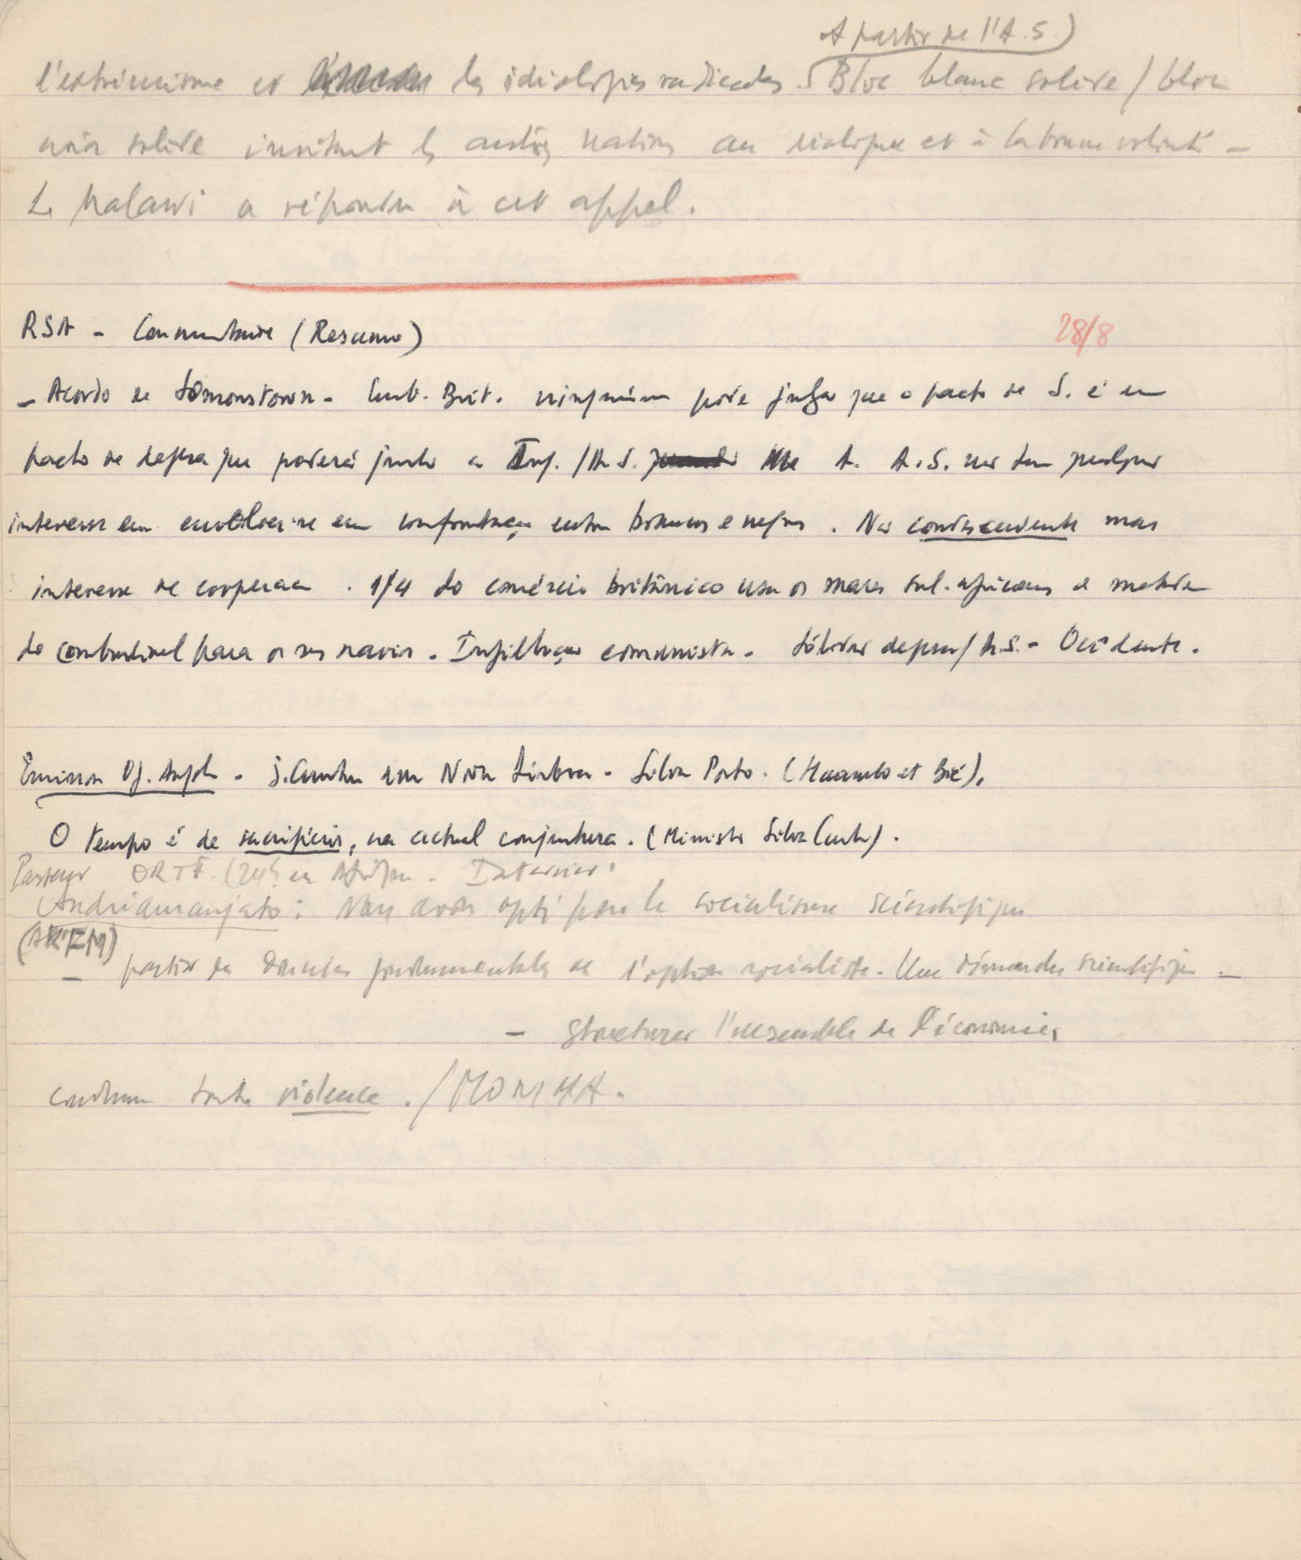 A partir de l'A.S.)
l'extrémisme et les idéologies radicales. Bloc blanc solide / bloc
noir solide invitant les autres nations au dialogue et à la bonne volonté -
Le Malawi a répondu à cet appel.
RSA - Commentaire (Resumo)
28/8
- Acordo de Simonstown - Emb. Brit. ninguém pode julgar que o pacto de S. é um
pacto de defesa que poderá A.S. não tem qualquer
interesse em envolver-se em confrontação entre brancos e negros. Não condescendente mas
interesse de cooperação. 1/4 do comércio britânico usa os mares sul-africanos e metade
do combustível para os seus navios. Infiltração comunista. defesa / A.S. - Ocidente.
Emission Of. Angola - S. Cunha em Nova Lisboa - Silva Porto. (Huambo et Bié).
O tempo é de sacrifícios, na actual conjuntura. (Ministro Silva Cunha).
Pasteur ORTF. (24h en Afrique - Interview:
Andriamanjato: Nous avons opté pour le socialisme scientifique
(AKFM)
- partir des données fondamentales de l'option socialiste. Une démarche scientifique -
- Structurer l'ensemble de l'économie.
condamne toute violence. / MONIMA.